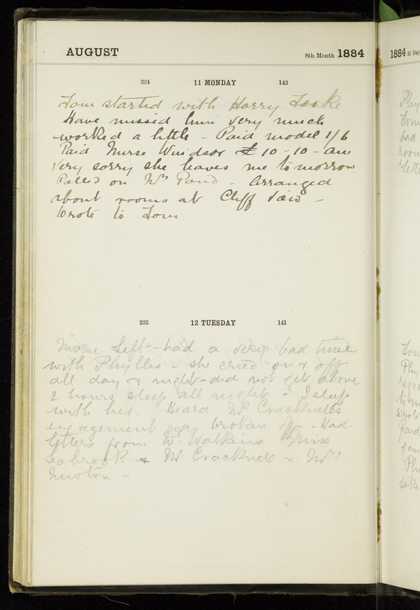 AUGUST 8th Month 1884
224 11 MONDAY 142
Tom started with Harry
Have missed him very much
worked a little - Paid model 1/6
Paid Nurse Windsor £10-10 - am
very sorry she leaves me tomorrow
on Mrs - Arranged
about rooms at Cliff
Wrote to Tom
225 12 TUESDAY 141
Nurse left - had a very bad time
with Phyllis - she cried on & off
all day & night - did not get above
2 hours sleep all night - I sleep
with her. Heard Mr Cracknells
engagement was broken off - Had
letters from W. Watkins Miss
Seabrook & Mr Cracknell & Mrs
Newton -
1884